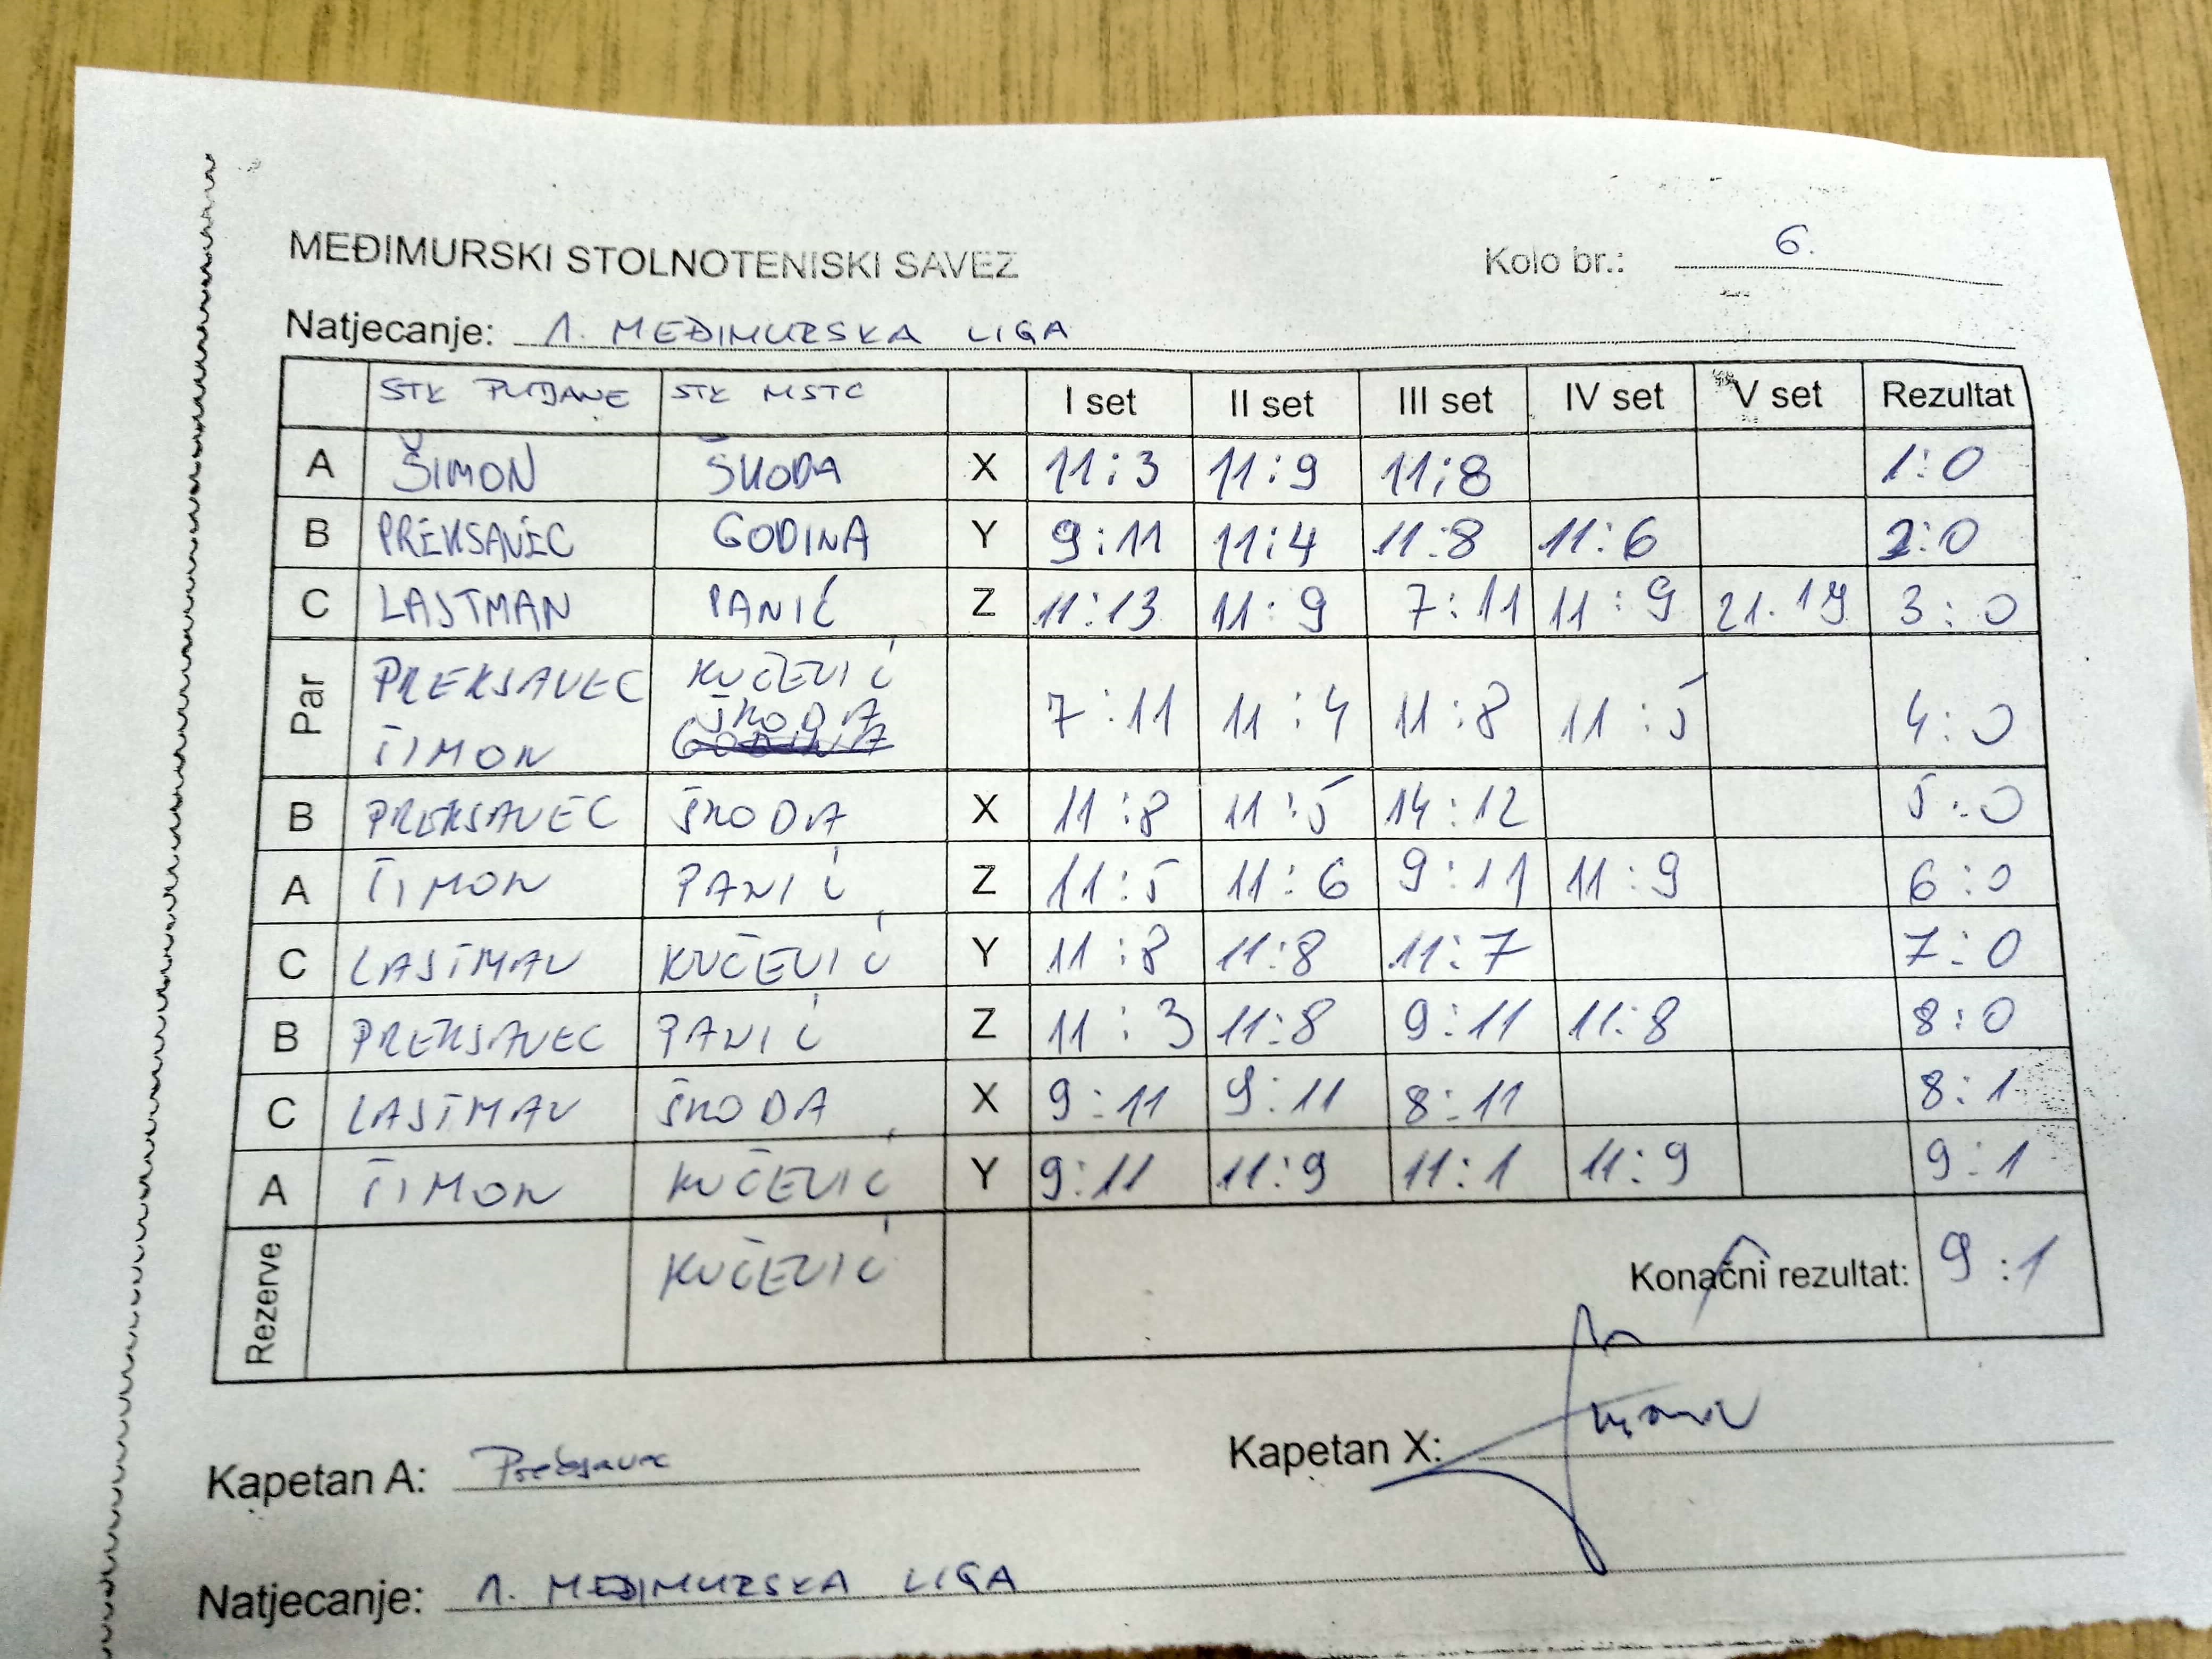 MEĐIMURSKI STOLNOTENISKI SAVEZ Kolo br.: 6.
Natjecanje: 1. MEĐIMURSKA LIGA
STK PUTJANE STK MSTC I set II set III set IV set V set Rezultat
A ŠIMON ŠKODA X 11:3 11:9 11:8 1:0
B PREKSAVEC GODINA Y 9:11 11:4 11:8 11:6 2:0
C LASTMAN PANIĆ Z 11:13 11:9 7:11 11:9 21.19 3:0
Par PREKSAVEC KUČEVIĆ
ŠIMON ŠKODA 7:11 11:4 11:8 11:5 4:0
GODINA
B PREKSAVEC ŠKODA X 11:8 11:5 14:12 5:0
A ŠIMON PANIĆ Z 11:5 11:6 9:11 11:9 6:0
C LASTMAN KUČEVIĆ Y 11:8 11:8 11:7 7:0
B PREKSAVEC PANIĆ Z 11:3 11:8 9:11 11:8 8:0
C LASTMAN ŠKODA X 9:11 9:11 8:11 8:1
A ŠIMON KUČEVIĆ Y 9:11 11:9 11:1 11:9 9:1
Rezerve KUČEVIĆ Konačni rezultat: 9:1
Kapetan A: Preksavec Kapetan X:
Natjecanje: 1. MEĐIMURSKA LIGA